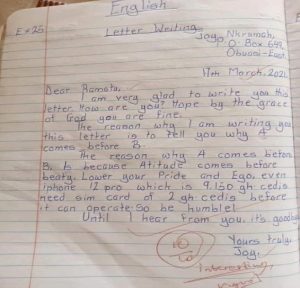 English
Ex 25
Letter Writing
Jogo Nkramah,
P.O. Box 649,
Obuasi-East.
17th March, 2021
Dear Ramatu,
I am very glad to write you this
letter. How are you? Hope by the grace
of God you are fine.
The reason why I am writing you
this letter is to tell you why A
comes before B.
The reason why A comes before
B, is because Atitude comes before
beaty. Lower your Pride and Ego, even
Iphone 12 pro which is 9.150 gh cedis
need sim card of 2 gh cedis before
it can operate. So be humble!
Until I hear from you. it's goodbye
Yours truly.
Jogi.
Interesting,